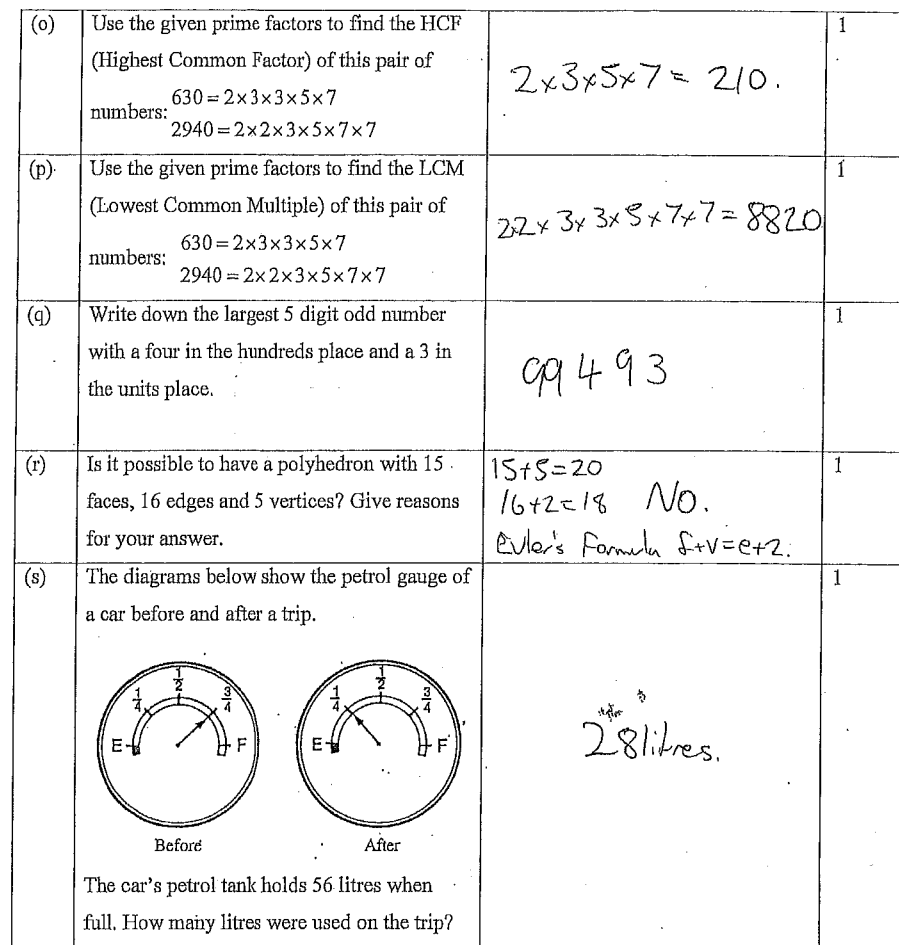 (o) Use the given prime factors to find the HCF
(Highest Common Factor) of this pair of
numbers: 630 = 2×3×3×5×7
2940 = 2×2×3×5×7×7
2×3×5×7 = 210.
1
(p) Use the given prime factors to find the LCM
(Lowest Common Multiple) of this pair of
numbers: 630 = 2×3×3×5×7
2940 = 2×2×3×5×7×7
2×2×3×3×5×7×7 = 8820
1
(q) Write down the largest 5 digit odd number
with a four in the hundreds place and a 3 in
the units place.
99493
1
(r) Is it possible to have a polyhedron with 15
faces, 16 edges and 5 vertices? Give reasons
for your answer.
15+5=20
16+2=18 No.
Euler's Formula f+v=e+2.
1
(s) The diagrams below show the petrol gauge of
a car before and after a trip.
E 1/4 1/2 3/4 F
Before
E 1/4 1/2 3/4 F
After
The car's petrol tank holds 56 litres when
full. How many litres were used on the trip?
28 litres.
1